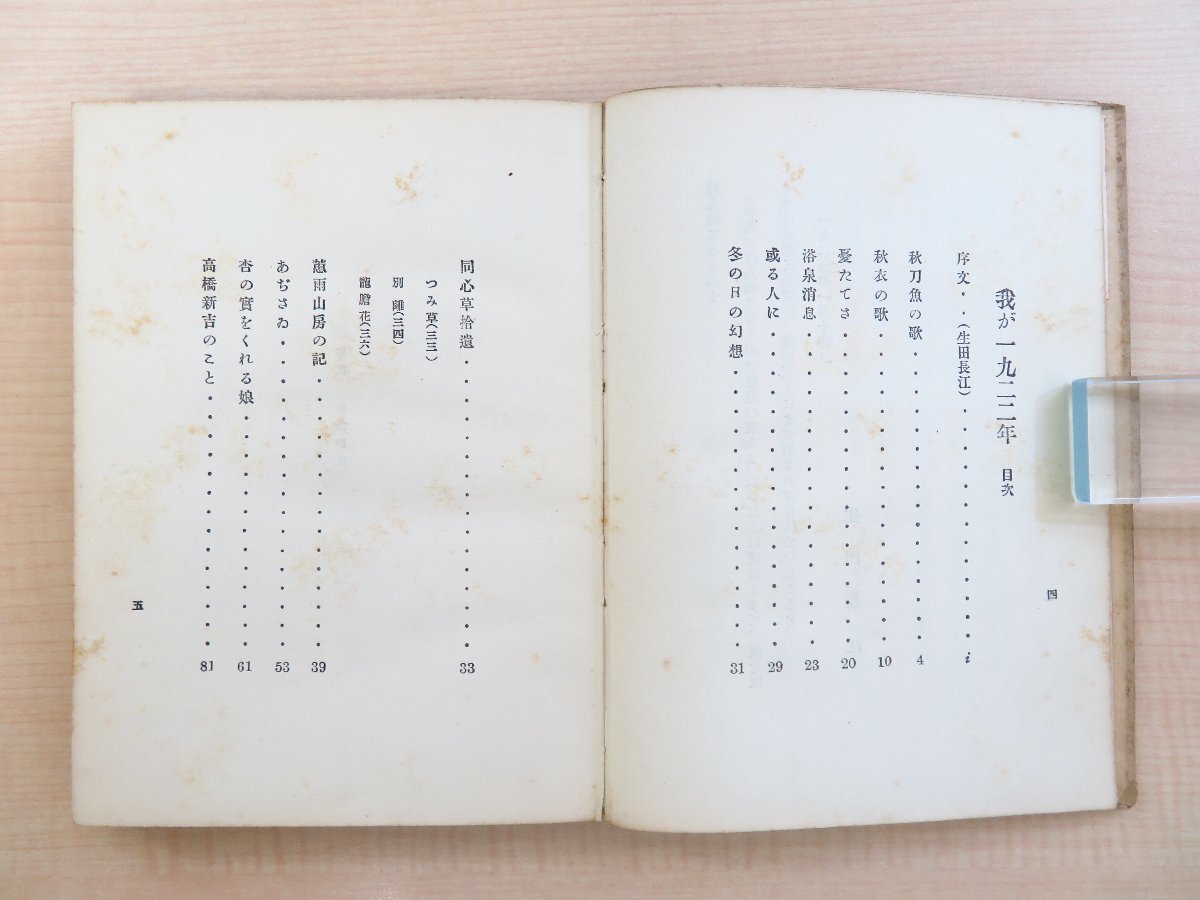 我が一九二二年 目次
序文・・(生田長江)・・・・・・・・・・・・・i
秋刀魚の歌・・・・・・・・・・・・・・・・4
秋衣の歌・・・・・・・・・・・・・・・・・10
憂たてさ・・・・・・・・・・・・・・・・・20
浴泉消息・・・・・・・・・・・・・・・・・23
或る人に・・・・・・・・・・・・・・・・・29
冬の日の幻想・・・・・・・・・・・・・・・31
四
同心草拾遺・・・・・・・・・・・・・・・・33
つみ草(三三)
別離(三四)
龍膽花(三六)
蕙雨山房の記・・・・・・・・・・・・・・・39
あぢさゐ・・・・・・・・・・・・・・・・・53
杏の實をくれる娘・・・・・・・・・・・・・61
高橋新吉のこと・・・・・・・・・・・・・・81
五